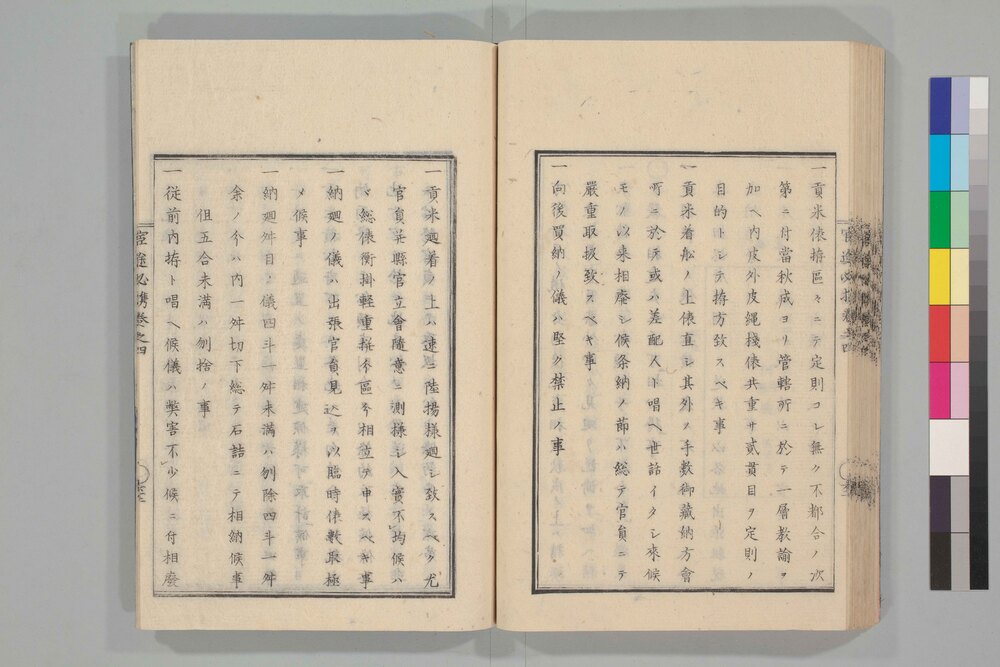 一貢米俵拵區々ニテ定則コレ無ク不都合ノ次
第ニ付當秋成ヨリ管轄所ニ於テ一層教諭ヲ
加ヘ内皮外皮繩棧俵共重サ貳貫目ヲ定則ノ
目的トシテ拵方致スヘキ事
一貢米着船ノ上俵直シ其外ノ手數御藏納方會
所ニ於テ或ハ差配人ト唱ヘ世話イタシ來候
モノ以来相廢シ候条納ノ節ハ総テ官員ニテ
嚴重取扱致スヘキ事
一向後買納ノ儀ハ堅ク禁止ノ事
一貢米廻着ノ上ハ速ニ陸揚様廻シ致スヘク尤
官員并縣官立會隨意ニ測様シ入實不均候ハ
ヽ総俵衡掛輕重撰分區分相立テ申スヘキ事
一納廻ノ儀ハ出張官員見込ヲ以臨時俵數取極
メ候事
一納廻舛目ノ儀四斗一舛未満ハ刎除四斗一舛
余ノ分ハ内一舛切下総テ石詰ニテ相納候事
但五合未満ハ刎捨ノ事
一従前内拵ト唱ヘ候儀ハ弊害不少候ニ付相廢
官途必携巻之四